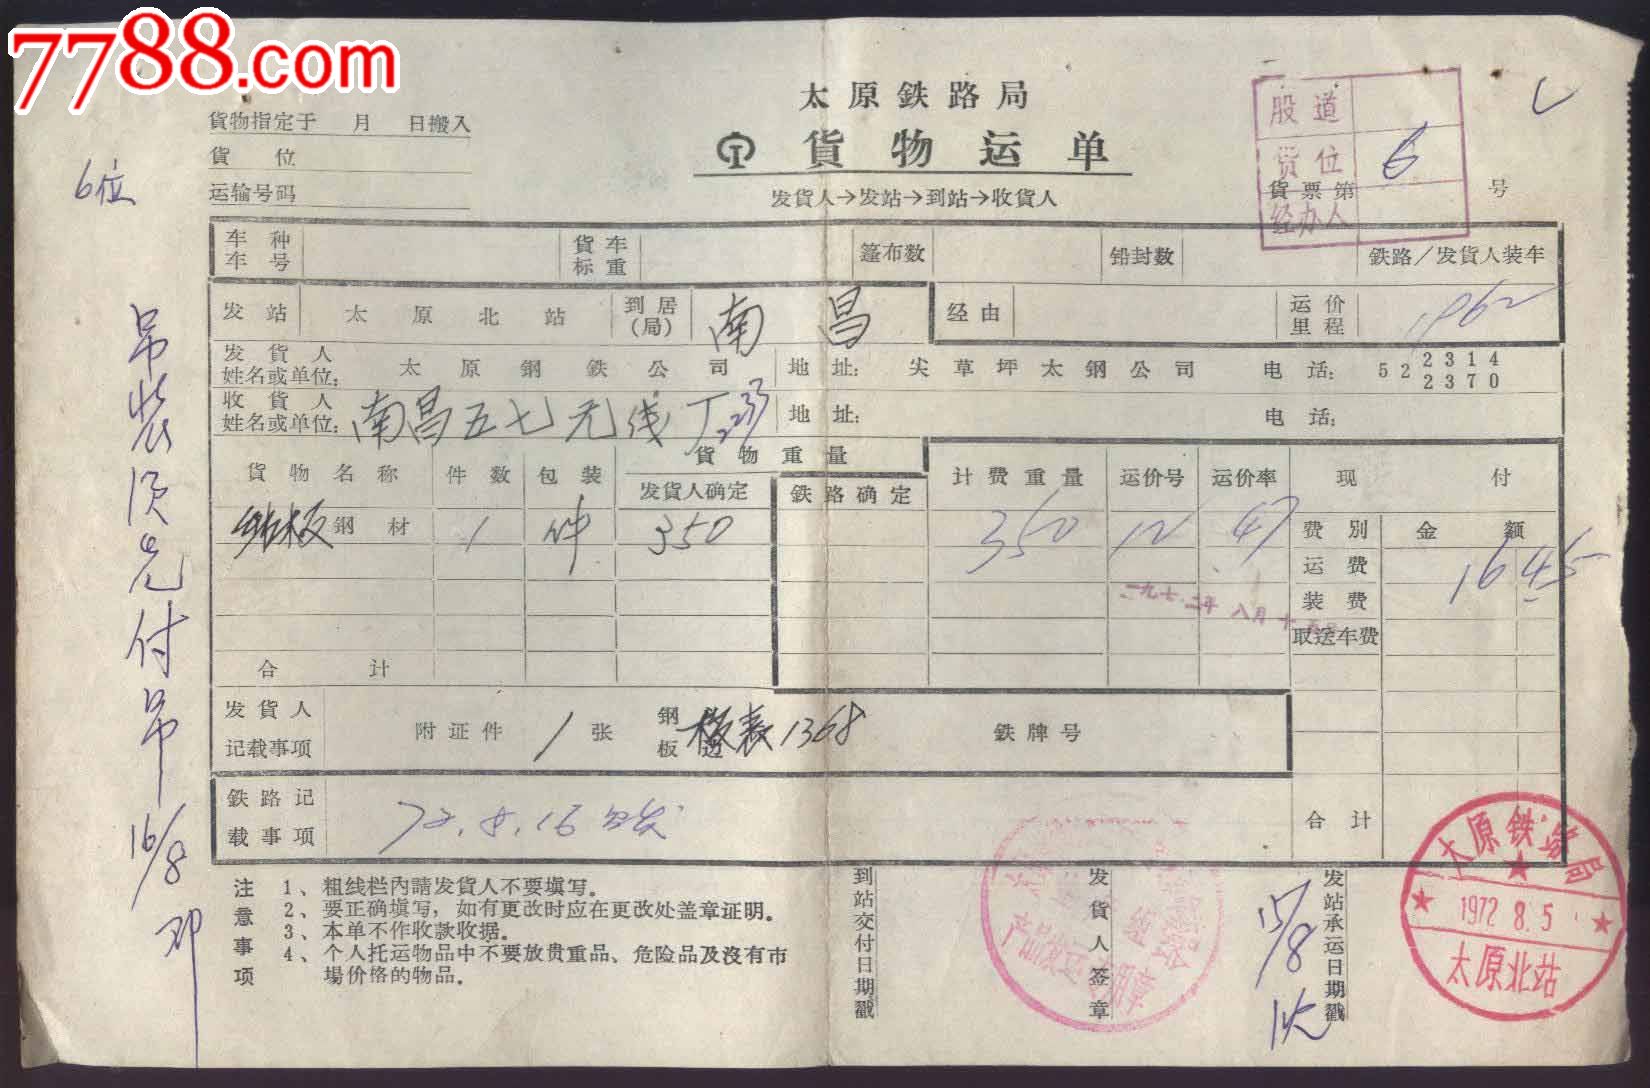 7788.com
太原鉄路局
貨物运单
发貨人→发站→到站→收貨人
貨物指定于 月 日搬入
貨 位
运输号码
6位
股道
货位 6
经办人
貨票第 号
车种
车号
貨车
标重
篷布数
铅封数
鉄路/发貨人装车
发站 太原北站 到居(局) 南昌
经由
运价
里程 1962
发貨人
姓名或单位: 太原鋼鉄公司 地址: 尖草坪太鋼公司 电话: 52 2314
2370
收貨人
姓名或单位: 南昌五七无线厂233 地址: 电话:
貨物名称 件数 包装 貨物重量 计费重量 运价号 运价率 现付
发貨人确定 鉄路确定
鋼材 1 件 350 350 12 47
费别 金额
运费 1645
装费
一九七二年八月十五日
取送车费
合计
发貨人
记载事项 附证件 1 张 鋼板 板表1368 鉄牌号
鉄路记
载事项 72.8.16
合计
注意事项
1、粗线栏内請发貨人不要填写。
2、要正确填写,如有更改时应在更改处盖章证明。
3、本单不作收款收据。
4、个人托运物品中不要放贵重品、危险品及沒有市
場价格的物品。
到站交付日期戳
发貨人签章
发站承运日期戳
15/8
太原铁路局
1972 8.5
太原北站
吊装须先付吊
16/8
邓